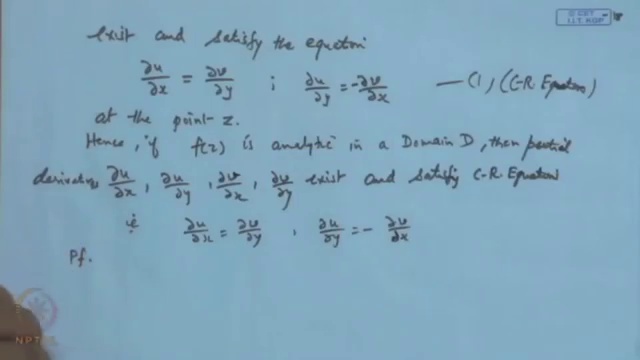 © CET
I.I.T. KGP
exist and satisfy the equation
∂u/∂x = ∂v/∂y ; ∂u/∂y = -∂v/∂x —(1) (C-R Equations)
at the point z.
Hence, if f(z) is analytic in a Domain D, then partial
derivatives ∂u/∂x, ∂u/∂y, ∂v/∂x, ∂v/∂y exist and satisfy C-R Equations
ie ∂u/∂x = ∂v/∂y , ∂u/∂y = - ∂v/∂x
Pf.
NPTEL